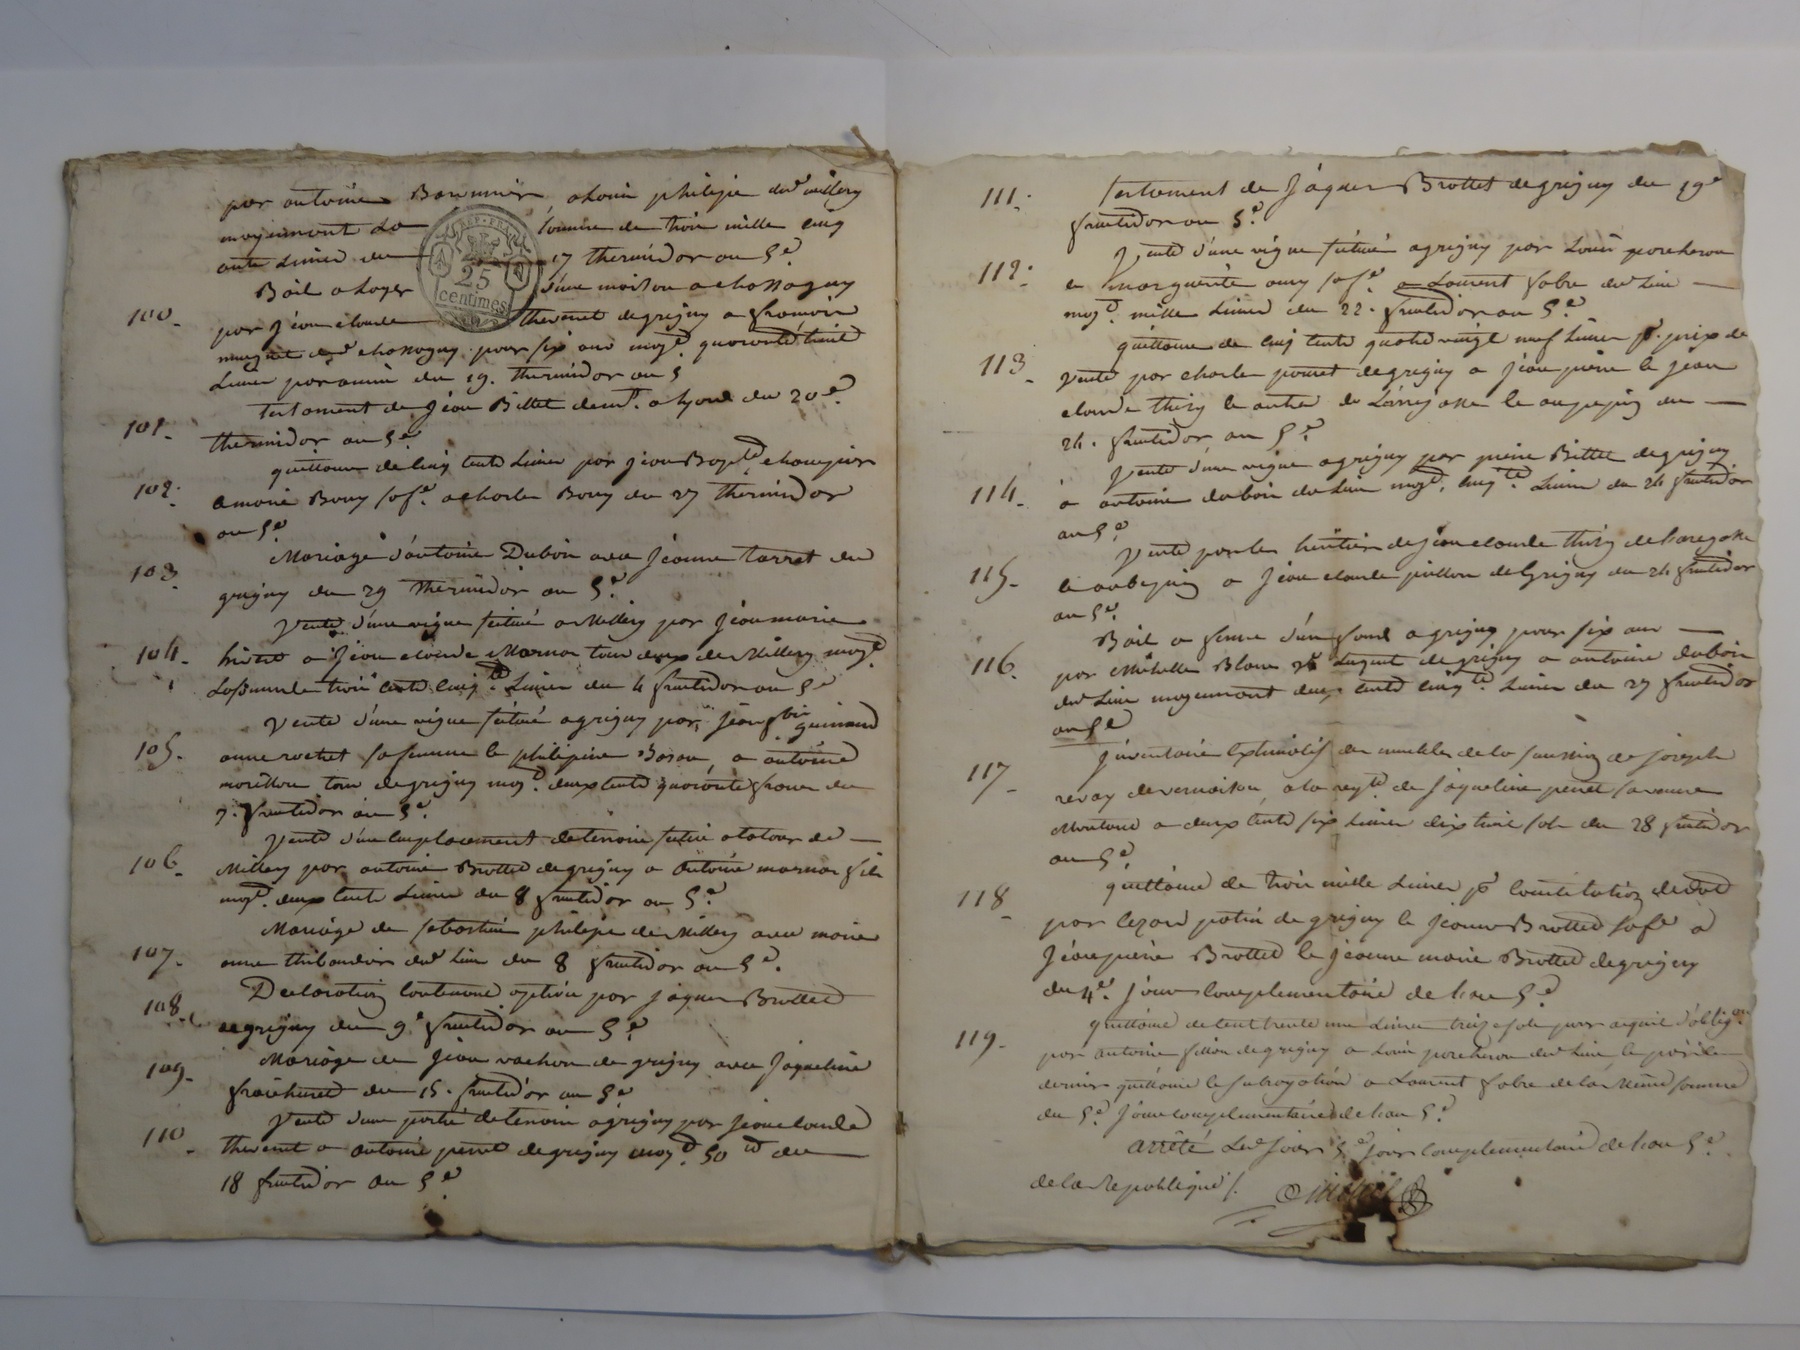 par antoine Bonnnier, a Louis philipe dud millery
moyennant La somme de trois mille cinq
cents Livres du 17 thermidor an 5e
REP. FRA.
25
centimes
100. Bail a Loyer d'une maison a chassagny
par Jean claude thevenet de grigny a francois
muguet dud chassagny pour six ans moyt. quarante huit
Livres par année du 19. thermidor an 5
101. testament de Jean Billet demt. a Lyon du 20e.
thermidor an 5e
102. quittance de cinq cents Livres par Jean Bapte
a marie Bony sa fe. a charles Bony du 27 thermidor
an 5e
103. Mariage d'antoine Dubois avec Jeanne tarret de
grigny du 29 thermidor an 5e.
104. Vente d'une vigne située a Millery par Jean marie
a Jean claude Marnas tous deux de Millery moyt.
La somme de trois cents cinqte. Livres du 4 fructidor an 5e
105. Vente d'une vigne située a grigny par Jean guinand
anne rochet sa femme et philipine Boson, a antoine
morillon tous de grigny moyt. deux cents quarante francs du
7. fructidor an 5e.
106. Vente d'un emplacement de terrain situé a la tour de
Millery par antoine Brottet de grigny a antoine marnas fils
moyt. deux cents Livres du 8 fructidor an 5e.
107. Mariage de sebastien philipe de Millery avec marie
anne thibaudier dud Lieu du 8 fructidor an 5e.
108. Declaration contenant option par Jaques Brottet
de grigny du 9e fructidor an 5e
109. Mariage de Jean vachon de grigny avec Jaqueline
franchunet du 15. fructidor an 5e
110. Vente d'une partie de terrain a grigny par Jean claude
thevenet a antoine perret de grigny moyt. 50 tt du
18 fructidor an 5e
111. testament de Jaques Brottet de grigny du 19e
fructidor an 5e.
112. Vente d'une vigne située a grigny par Louis porcheron
et marguerite amy sa fe. a Laurent fabre dud Lieu
moyt. mille Livres du 22. fructidor an 5e
113. quittance de cinq cents quatre vingt neuf Livres pr. prix de
vente par charles poncet de grigny a Jean pierre et Jean
claude thiry et autres de
24. fructidor an 5e.
114. Vente d'une vigne a grigny par pierre Billet de grigny
a antoine dubois du Lieu moyt. cinqte. Livres du 24 fructidor
an 5e
115. Vente par les heritiers de Jean claude thiry de
a Jean claude pillon de Grigny du 24 fructidor
an 5e.
116. Bail a ferme d'un fond a grigny pour six ans
par Michelle Blanc de grigny a antoine dubois
dud Lieu moyennant deux cents cinqte. Livres du 27 fructidor
an 5e
117. Inventaire estimatif des meubles de la succession de joseph
revay de vernaison, a la reqte. de Jaqueline perret sa veuve
Montant a deux cents six Livres dix huit sols du 28 fructidor
an 5e.
118. quittance de trois mille Livres pr constitution de dot
par cezard patin de grigny et Jeanne Brottet sa fe a
Jean pierre Brottet et Jeanne marie Brottet de grigny
du 4e. jour complementaire de l'an 5e
119. quittance de cent trente une Livres treize sols pour acquit d'obligon
par antoine fillon de grigny a Louis porcheron dud Lieu, et par ce
dernier quittance et subrogation a Laurent fabre de la même somme
du 5e. Jour complementaire de l'an 5e.
arrêté Led jour 5e jour complementaire de l'an 5e.
de la Republique /.